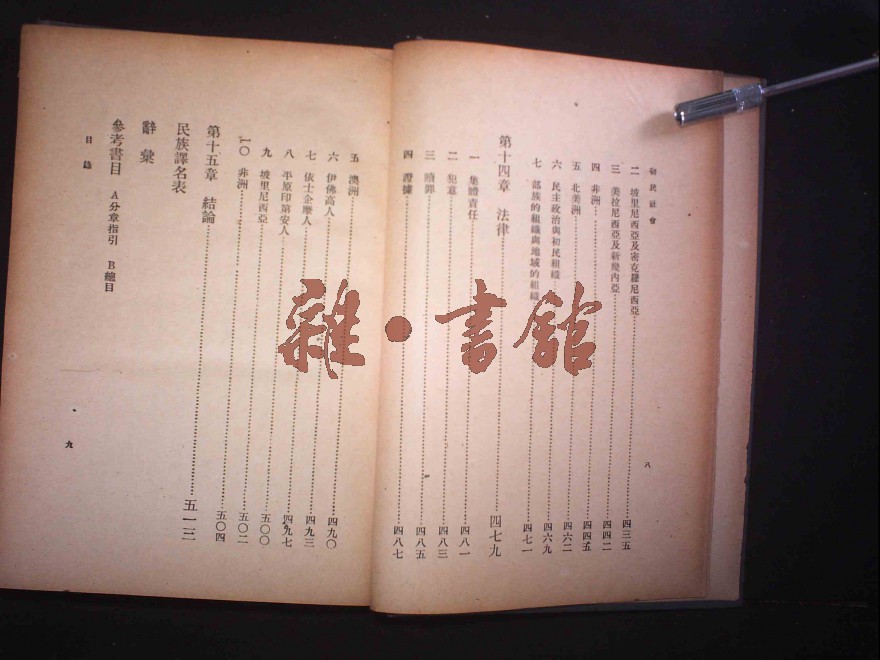 初民社會
二 坡里尼西亞及密克羅尼西亞……四三五
三 美拉尼西亞及新幾內亞……四四二
四 非洲……四四五
五 北美洲……四六二
六 民主政治與初民組織……四六九
七 部族的組織與地域的組織……四七一
第十四章 法律……四七九
一 集體責任……四八一
二 犯意……四八三
三 贖罪……四八五
四 證據……四八七
八
五 澳洲……四九〇
六 伊佛高人……四九三
七 依士企摩人……四九三
八 平原印第安人……四九七
九 坡里尼西亞……五〇〇
一〇 非洲……五〇二
第十五章 結論……五〇四
民族譯名表……五一三
辭彙
參考書目 A分章指引 B總目
目錄
九
雜·書館